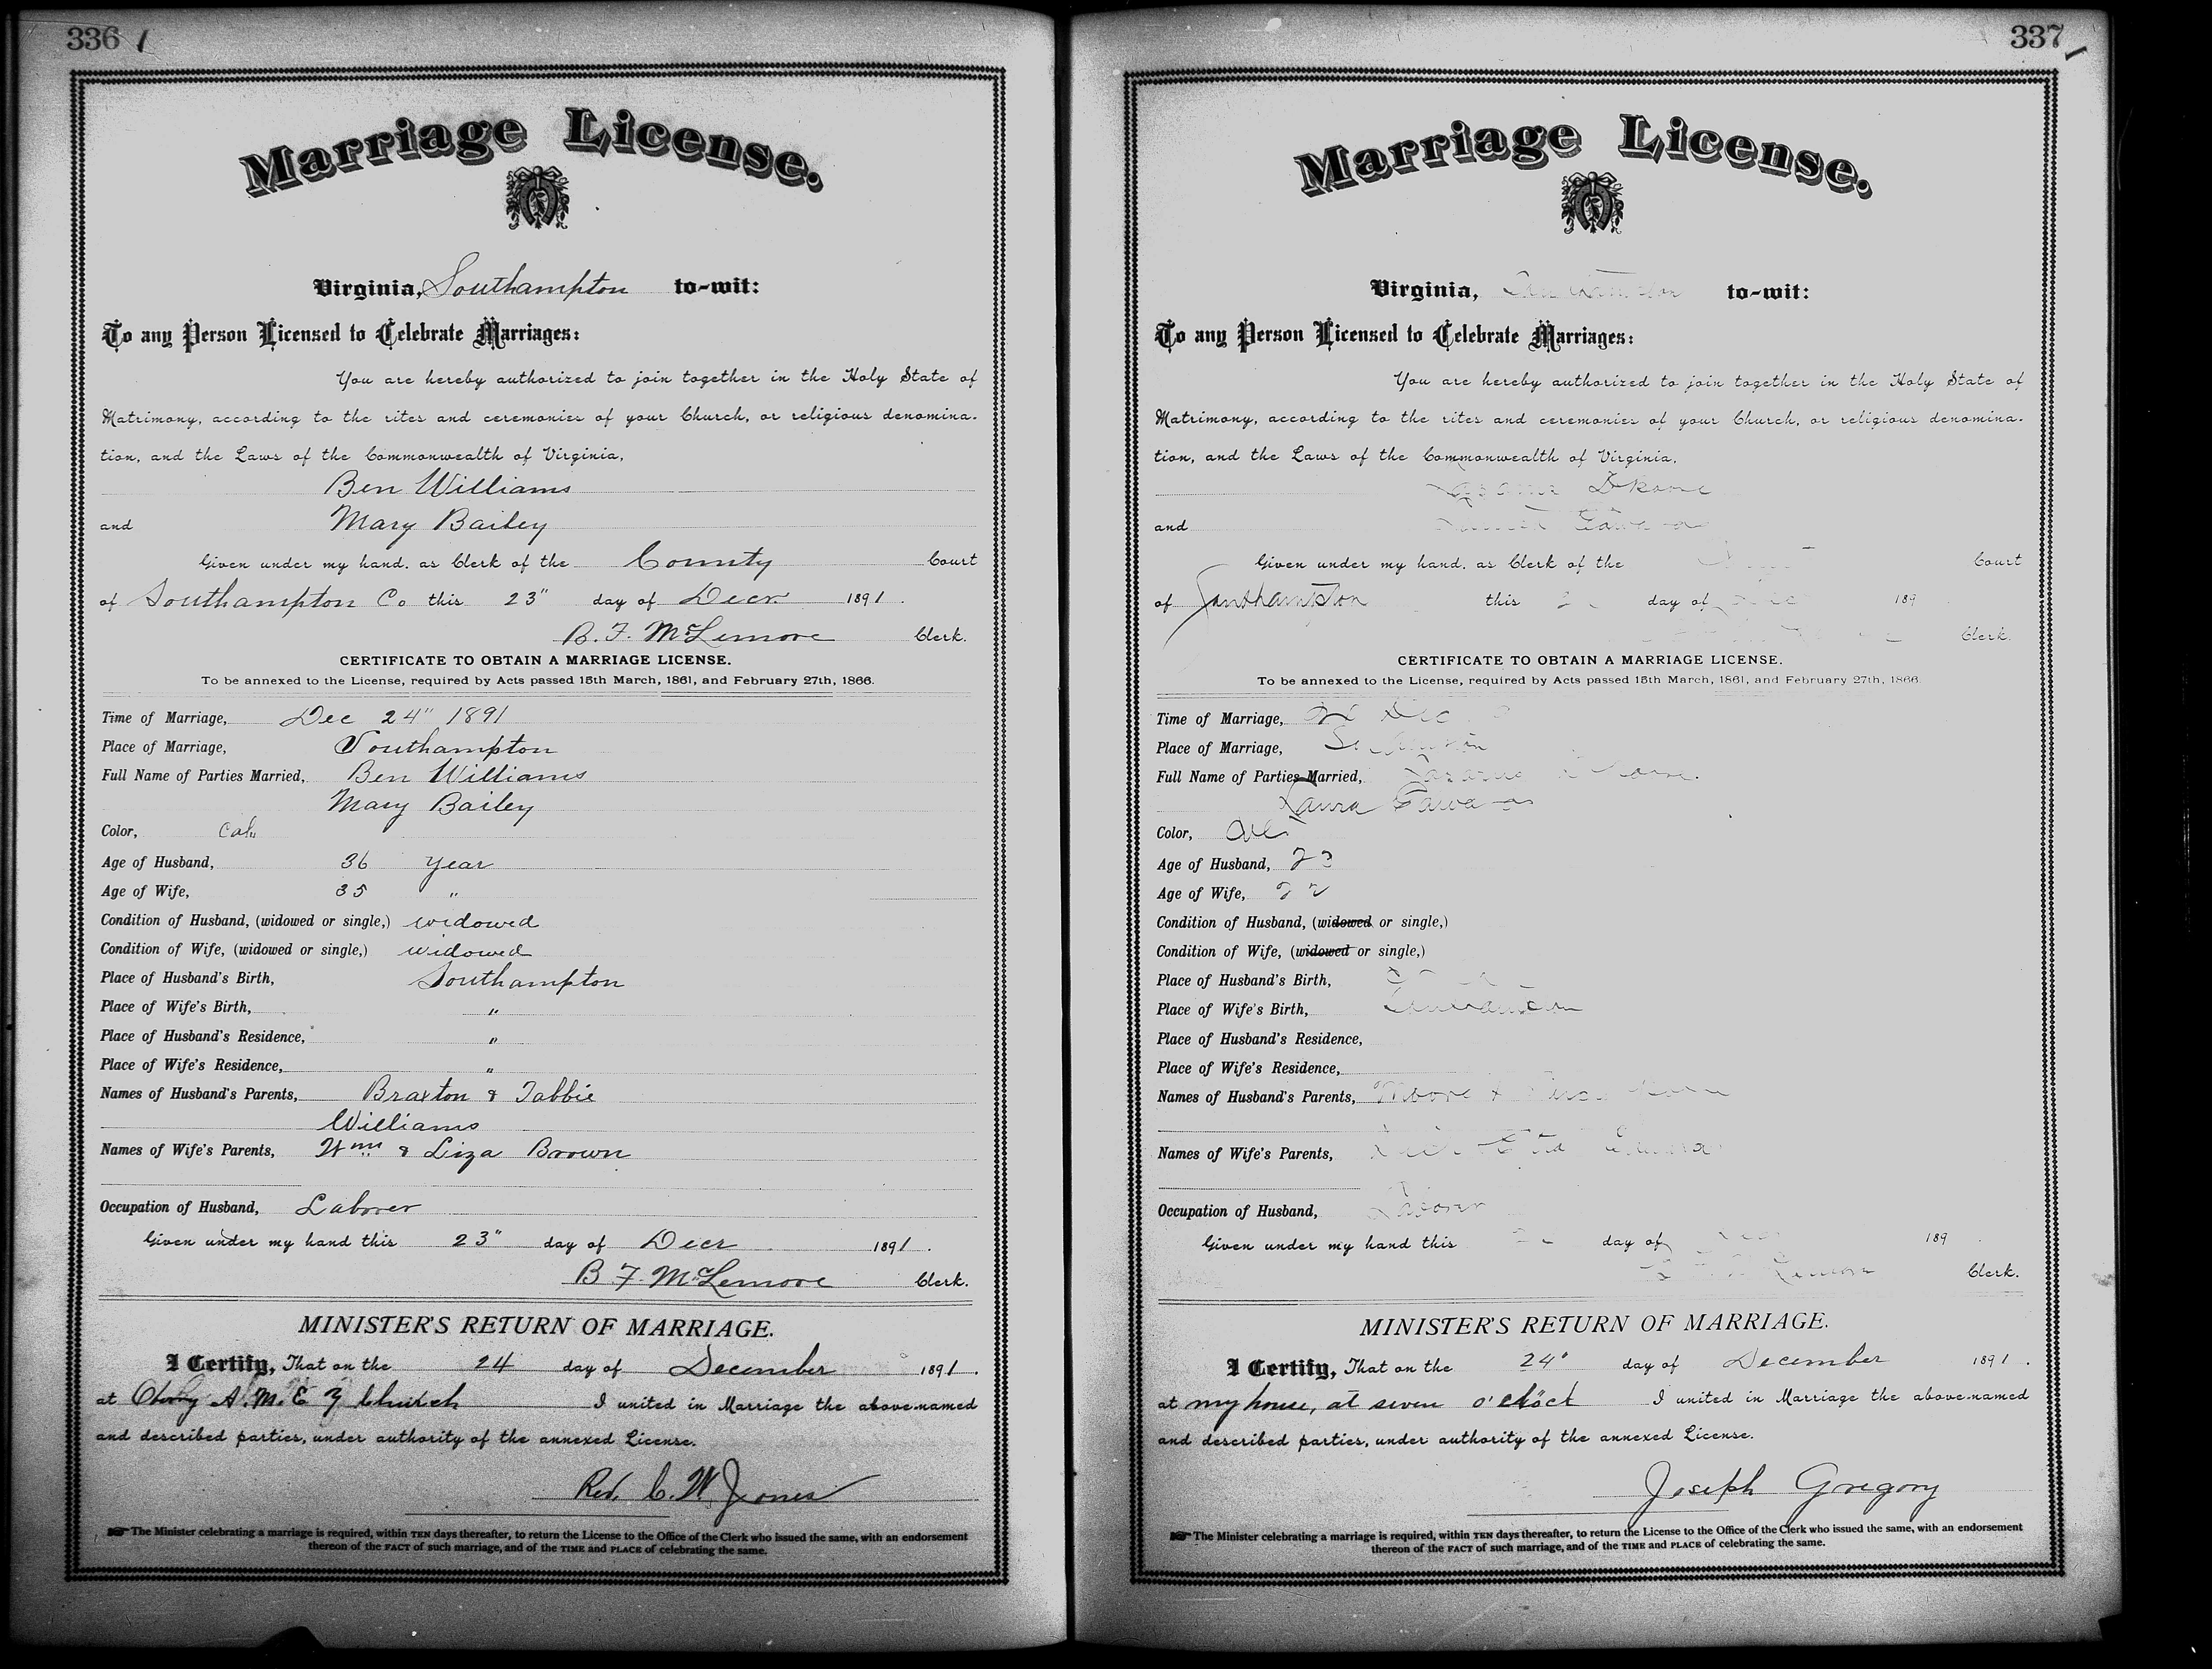 336
Marriage License.
Virginia, Southampton to-wit:
To any Person Licensed to Celebrate Marriages:
You are hereby authorized to join together in the Holy State of
Matrimony, according to the rites and ceremonies of your Church, or religious denomina-
tion, and the Laws of the Commonwealth of Virginia,
Ben Williams
and Mary Bailey
Given under my hand, as Clerk of the County Court
of Southampton Co this 23" day of Decr 1891.
B. F. McLemore Clerk.
CERTIFICATE TO OBTAIN A MARRIAGE LICENSE.
To be annexed to the License, required by Acts passed 15th March, 1861, and February 27th, 1866.
Time of Marriage, Dec 24" 1891
Place of Marriage, Southampton
Full Name of Parties Married, Ben Williams
Mary Bailey
Color, Col
Age of Husband, 36 Year
Age of Wife, 35 "
Condition of Husband, (widowed or single,) widowed
Condition of Wife, (widowed or single,) widowed
Place of Husband's Birth, Southampton
Place of Wife's Birth, "
Place of Husband's Residence, "
Place of Wife's Residence, "
Names of Husband's Parents, Braxton & Tabbie
Williams
Names of Wife's Parents, Wm & Liza Brown
Occupation of Husband, Laborer
Given under my hand this 23" day of Decr 1891.
B F. McLemore Clerk.
MINISTER'S RETURN OF MARRIAGE.
I Certify, That on the 24 day of December 1891.
at A. M. E Z Church I united in Marriage the above-named
and described parties, under authority of the annexed License.
Rev. C. W. Jones
The Minister celebrating a marriage is required, within TEN days thereafter, to return the License to the Office of the Clerk who issued the same, with an endorsement
thereon of the FACT of such marriage, and of the TIME and PLACE of celebrating the same.
337
Marriage License.
Virginia, to-wit:
To any Person Licensed to Celebrate Marriages:
You are hereby authorized to join together in the Holy State of
Matrimony, according to the rites and ceremonies of your Church, or religious denomina-
tion, and the Laws of the Commonwealth of Virginia,
and
Given under my hand, as Clerk of the Court
of Southampton this day of 189
Clerk.
CERTIFICATE TO OBTAIN A MARRIAGE LICENSE.
To be annexed to the License, required by Acts passed 15th March, 1861, and February 27th, 1866.
Time of Marriage, Dec
Place of Marriage,
Full Name of Parties Married,
Laura
Color,
Age of Husband, 23
Age of Wife, 22
Condition of Husband, (widowed or single,)
Condition of Wife, (widowed or single,)
Place of Husband's Birth,
Place of Wife's Birth,
Place of Husband's Residence,
Place of Wife's Residence,
Names of Husband's Parents, Moore &
Names of Wife's Parents,
Occupation of Husband, Laborer
Given under my hand this day of 189
Clerk.
MINISTER'S RETURN OF MARRIAGE.
I Certify, That on the 24" day of December 1891.
at my house, at seven o'clock I united in Marriage the above-named
and described parties, under authority of the annexed License.
Joseph Gregory
The Minister celebrating a marriage is required, within TEN days thereafter, to return the License to the Office of the Clerk who issued the same, with an endorsement
thereon of the FACT of such marriage, and of the TIME and PLACE of celebrating the same.